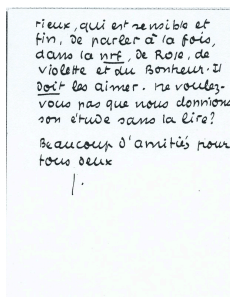 rieux, qui est sensible et
fin, de parler à la fois,
dans la nrf, de Rose, de
violette et du Bonheur. Il
Doit les aimer. ne voulez-
vous pas que nous donnions
son étude sans la lire?
Beaucoup d'amitiés pour
tous deux
J.